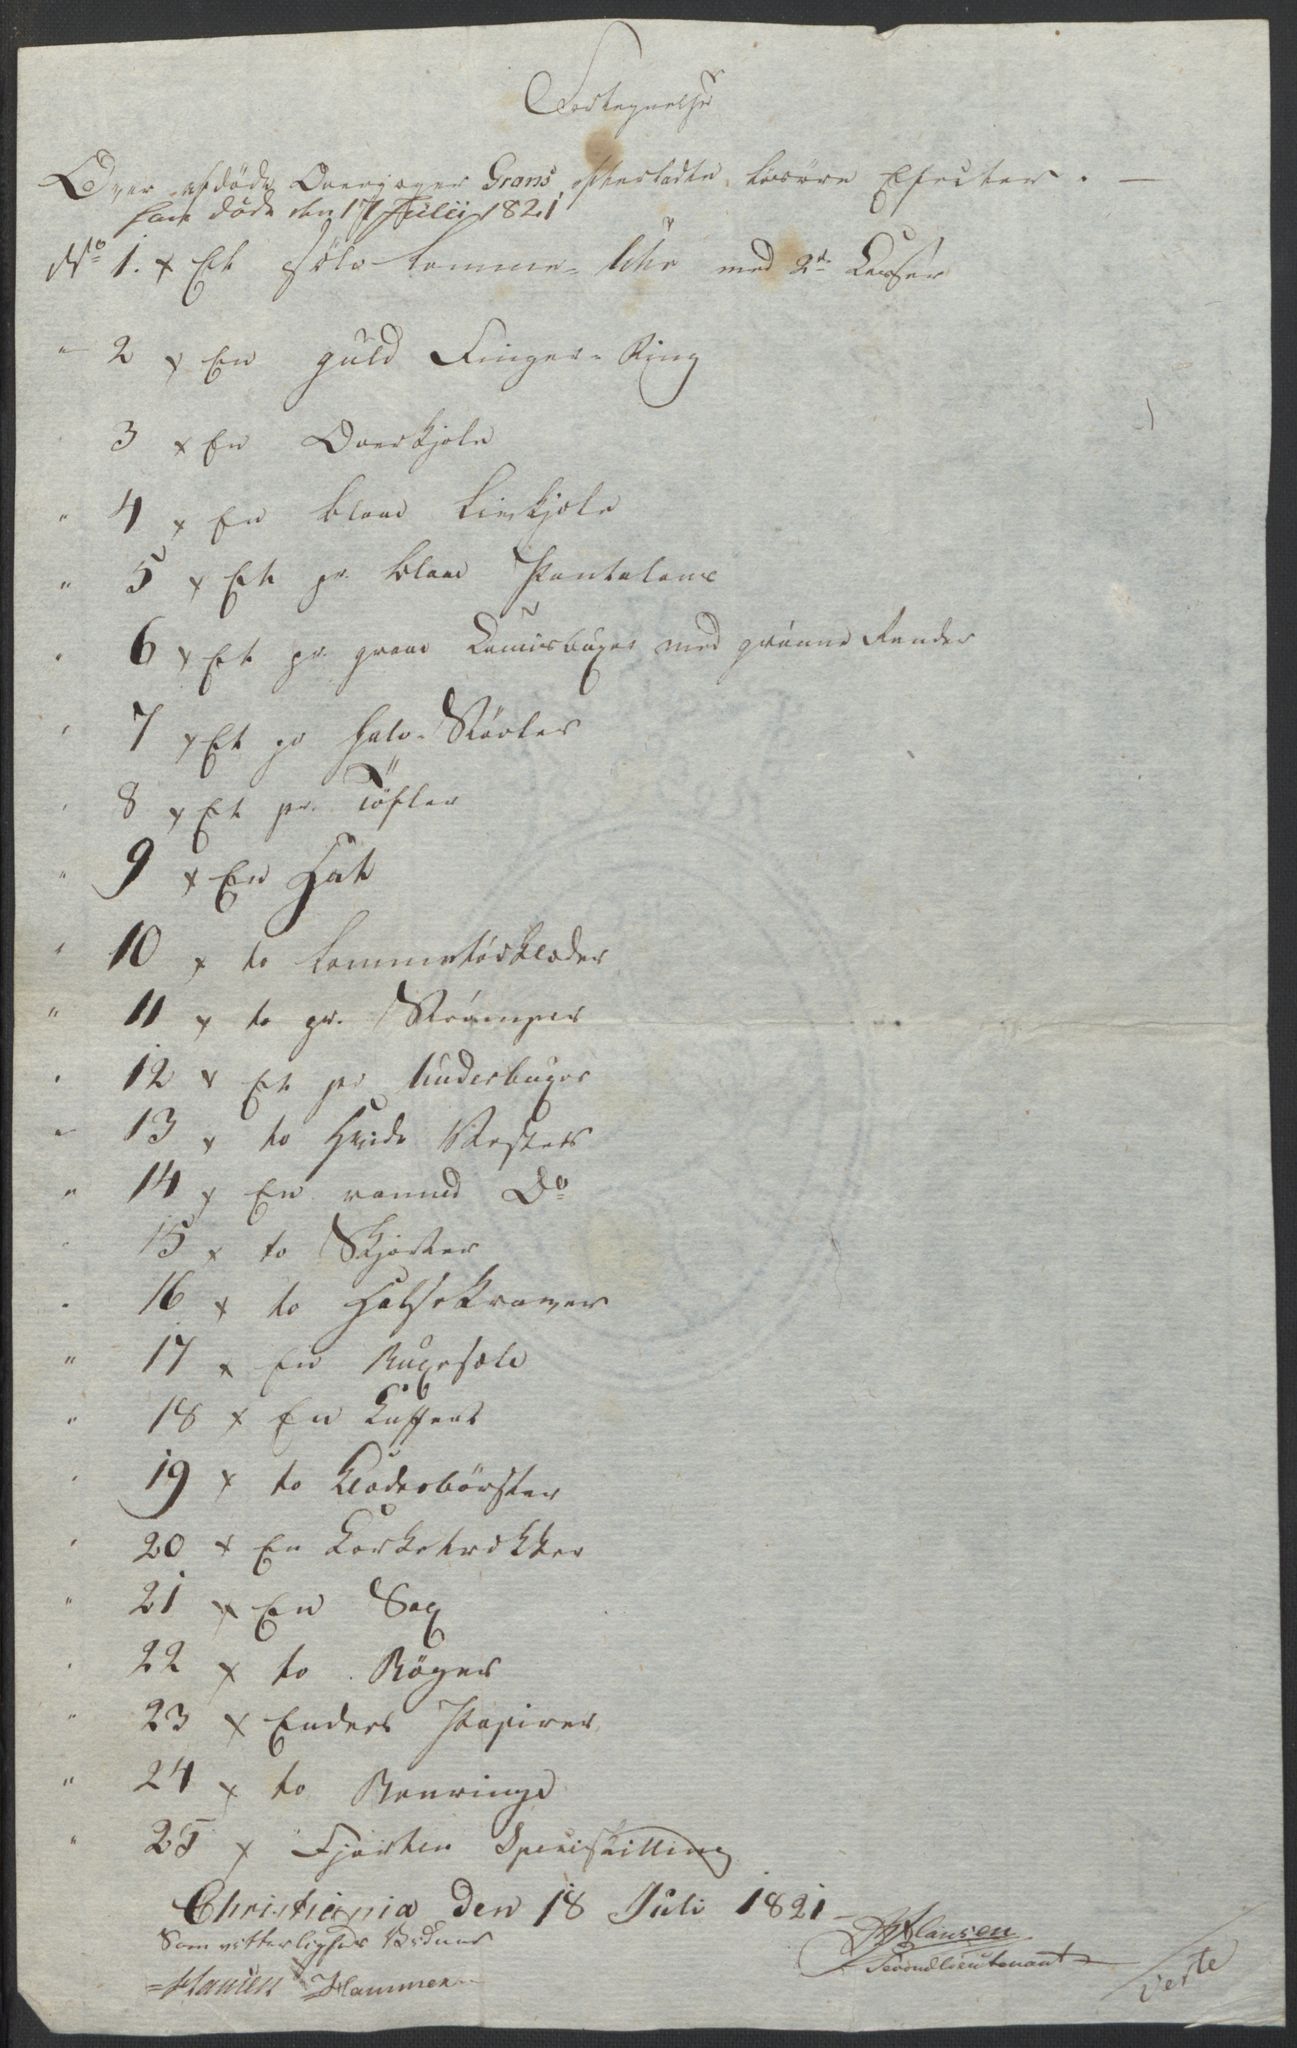 Fortegnelse
Over afdöde Overjæger Grans efterladte Lösöre Efecter. —
han döde den 17 Julii 1821
No 1. x Et sölv Lomme-Uhr med 2de Kasser
" 2 x En guld Finger-Ring
" 3 x En Overkjole
" 4 x En blaae Livkjole
" 5 x Et pr. blaae Pantalons
" 6 x Et pr. graae Lærredsbuxer med grönne Render
" 7 x Et pr halv-Stövler
" 8 x Et pr. Töfler
" 9 x En Hat
" 10 x to Lommetörklæder
" 11 x to pr. Strömper
" 12 x Et pr Underbuxer
" 13 x to Hvide Vester
" 14 x En Do
" 15 x to Skjorter
" 16 x to Halsekraver
" 17 x En Buxesæle
" 18 x En Kuffert
" 19 x to Klædesbörster
" 20 x En Korketrækker
" 21 x En Sax
" 22 x to Böger
" 23 x Endeel Papirer
" 24 x to
" 25 x Fjorten Specieskilling
Christiania den 18 Juli 1821
Som vitterligheds Vidner
Hansen Hammer
Hansen
Secondlieutenant
Verte